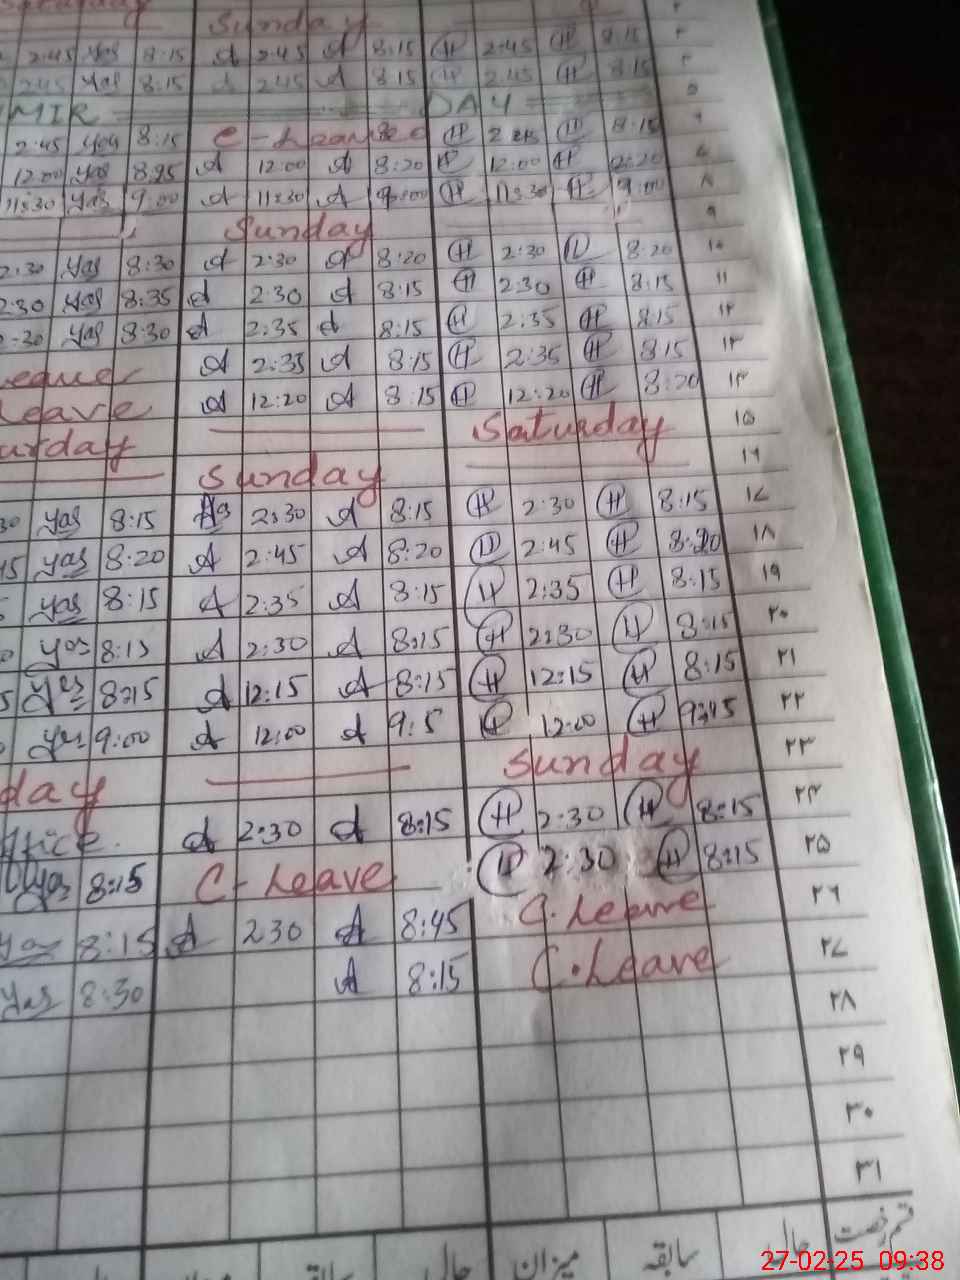 Sunday
2:45 Yas 8:15 A 2:45 A 8:15 H 2:45 H 8:15 ۳
2:45 Yas 8:15 A 2:45 A 8:15 H 2:45 H 8:15
MIR DAY ۵
2:45 You 8:15 C-Leave H H 8:15 ۶
12:00 Yas A 12:00 A 8:20 H 12:00 H ۷
11:30 Yas 9:00 A 11:30 A H 11:30 H 9:00 ۸
Sunday ۹
2:30 Yas 8:30 A 2:30 A 8:20 H 2:30 H 8:20 ۱۰
2:30 Yas 8:35 A 2:30 A 8:15 H 2:30 H 8:15 ۱۱
:30 Yas 8:30 A 2:35 A 8:15 H 2:35 H 8:15 ۱۲
A 2:35 A 8:15 H 2:35 H 8:15 ۱۳
Leave A 12:20 A 8:15 H 12:20 H 8:20 ۱۴
urday Saturday ۱۵
Sunday ۱۶
30 Yas 8:15 2:30 A 8:15 H 2:30 H 8:15 ۱۷
15 Yas 8:20 A 2:45 A 8:20 H 2:45 H 8:20 ۱۸
5 Yas 8:15 A 2:35 A 8:15 H 2:35 H 8:15 ۱۹
0 Yas 8:15 A 2:30 A 8:15 H 2:30 H 8:15 ۲۰
5 Yas 8:15 A 12:15 A 8:15 H 12:15 H 8:15 ۲۱
Yas 9:00 A 12:00 A 9:5 H 12:00 H 9:45 ۲۲
day Sunday ۲۳
ffice. A 2:30 A 8:15 H 2:30 H 8:15 ۲۴
Yas 8:15 C-Leave H 2:30 H 8:15 ۲۵
Yas 8:15 A 230 A 8:45 C.Leave ۲۶
Yas 8:30 A 8:15 C.Leave ۲۷
۲۸
۲۹
۳۰
۳۱
سابقہ حالی میزان سابقہ حالی قسم رخصت
27-02-25 09:38